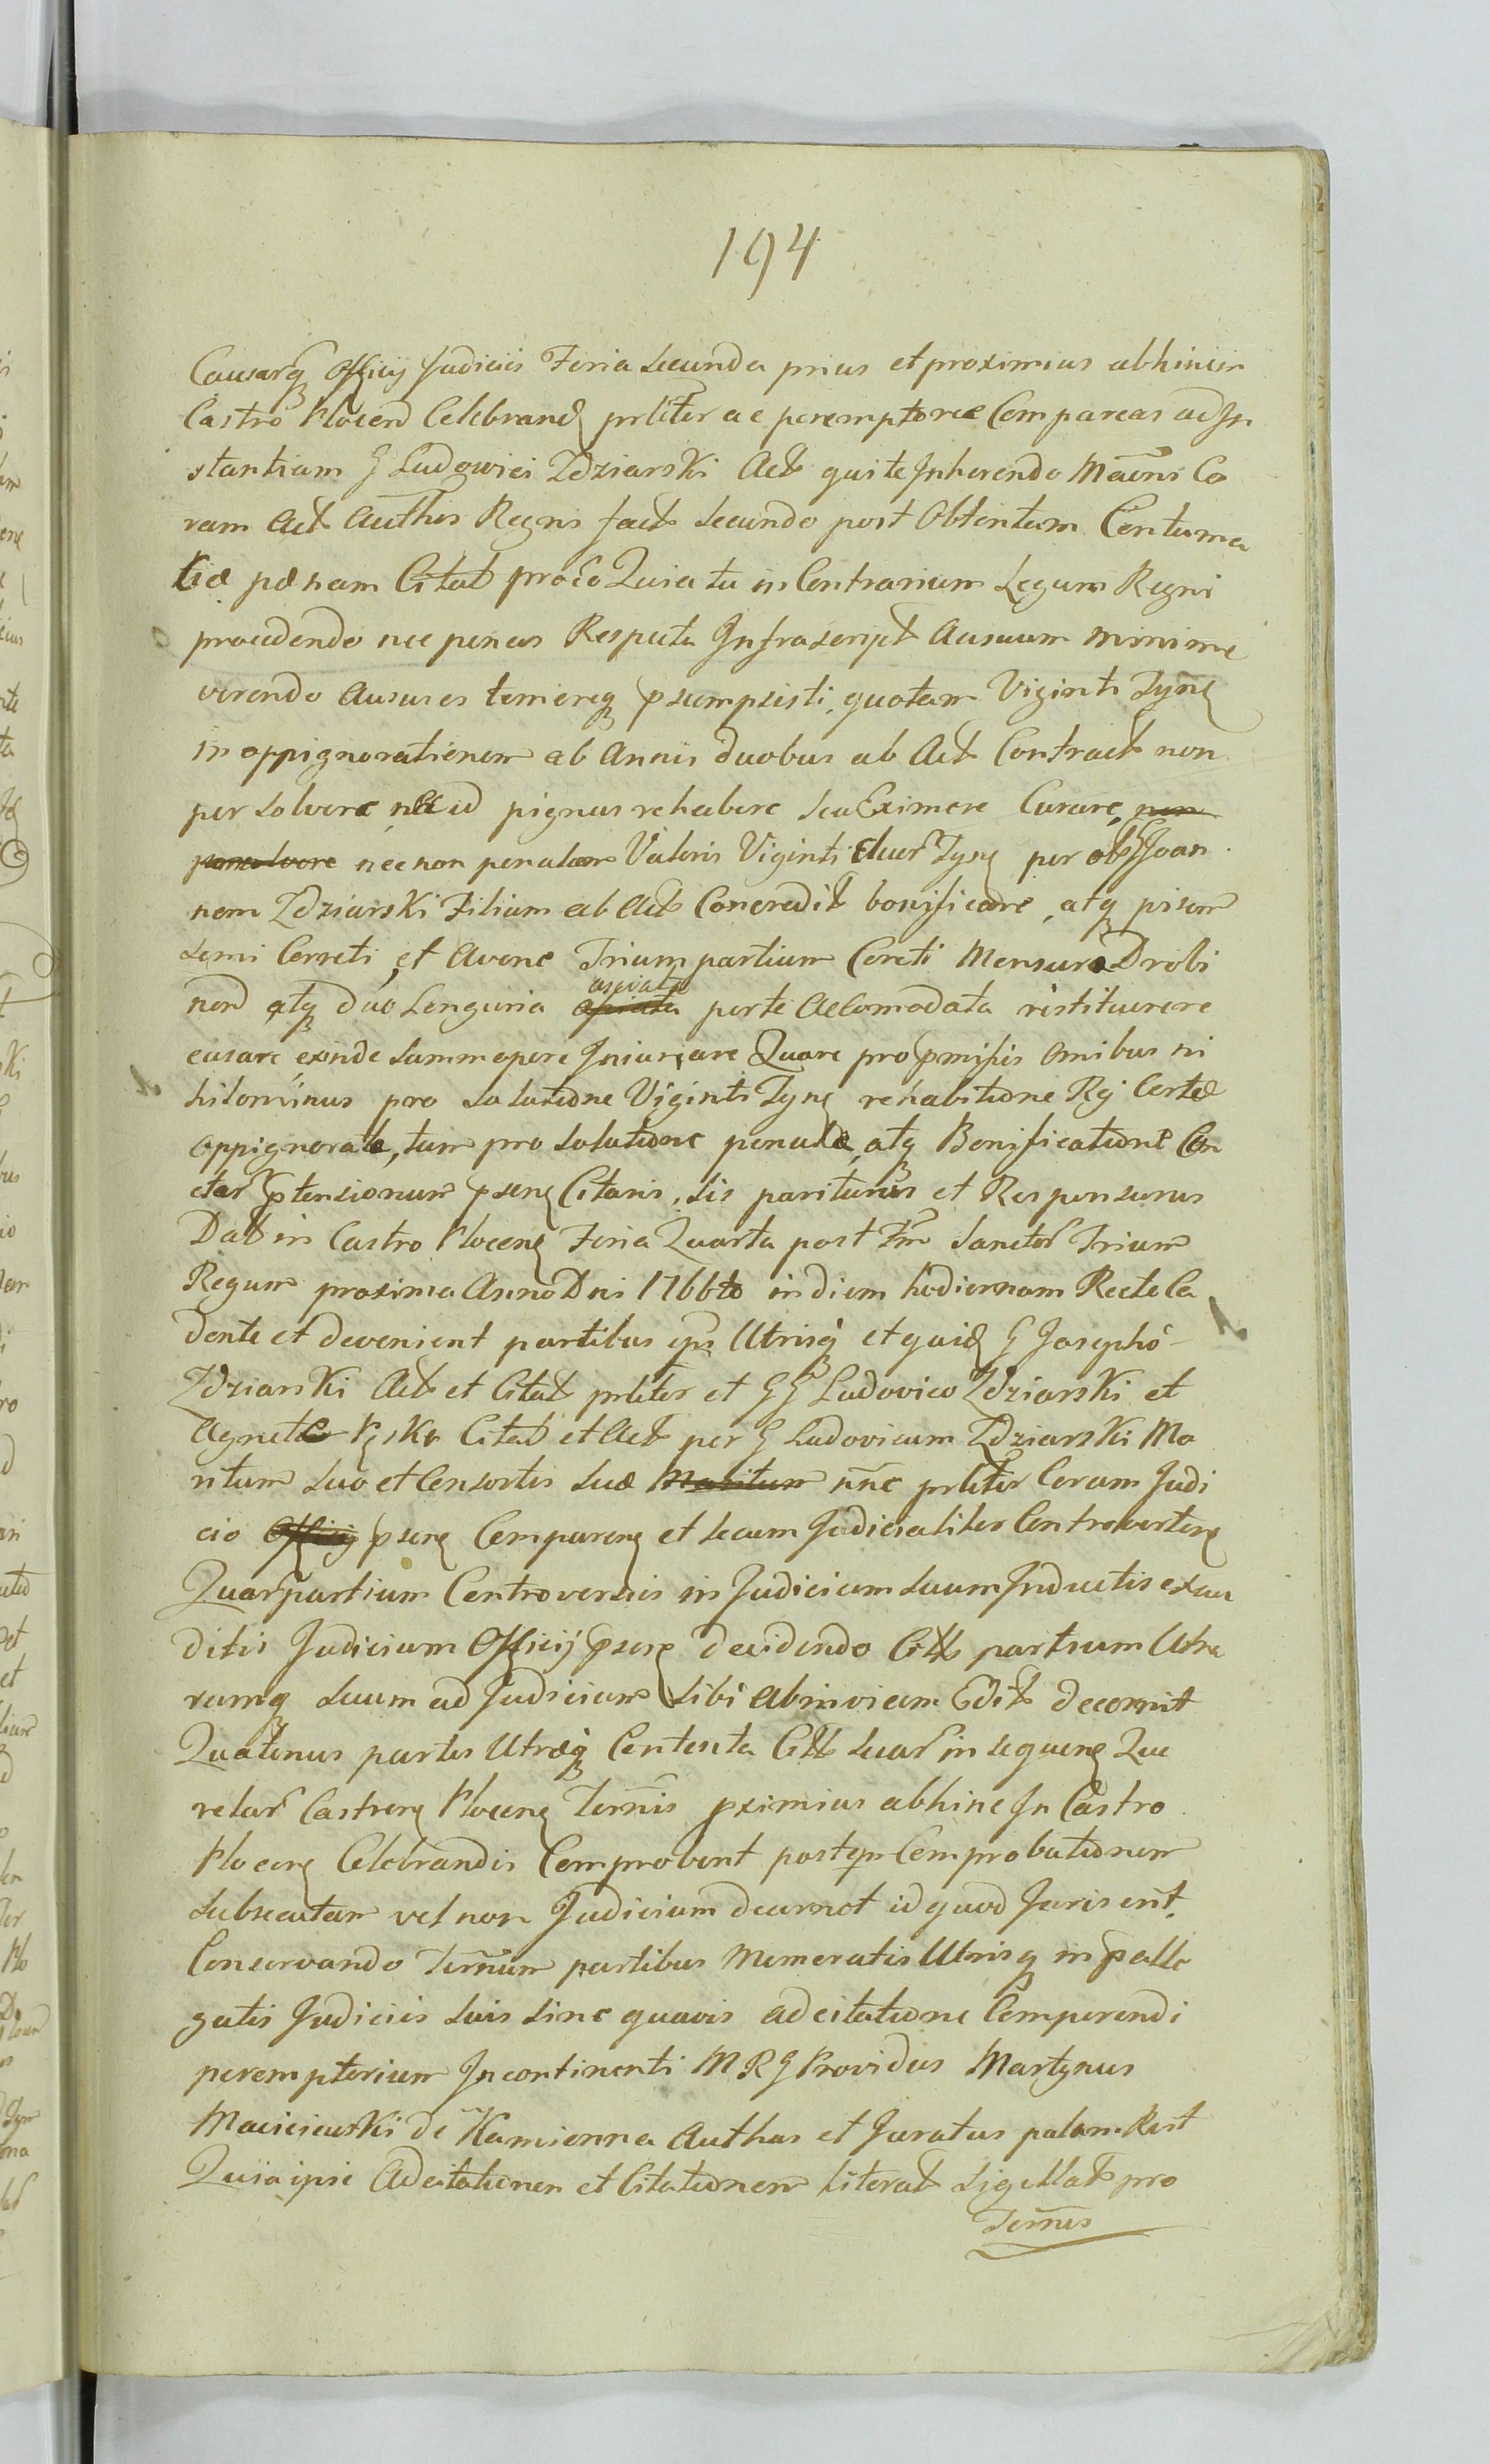 194
Causarq Officij Judiciis Feria Secunda prius et proximius abhinc in
Castro Plocen Celebrand prliter ac peremptorie Compareas ad In
stantiam G Ludovici Zdziarski Act qui te Inherendo Maōni Co
ram Act Authis Regni fact Secundo post Obtentam Contuma
tiæ pænam Citat prōcō Quia tu in Contrarium Legum Regni
procedendo nec penas Respectu Infrascript Ausuum minime
verendo Ausus es temereq psumpsisti, quotam Viginti Tynf
in oppignorationem ab Annis duobus ab Act Contract non
persolvere, nec id pignus rehabere seu Eximere Curare,
nec non penulam Valoris Viginti duor Tynf per Joan
nem Zdziarski Filium ab Act Concredit bonificare, atq pisum
semi Cereti, et Avene Trium partium Cereti Mensuræ Drobi
nen atq duo Longuria per te Accomodata restituerere
cusare, exinde summopere Iniuriare Quare pro pmissis omibus ni
hilominus pro solutione Viginti Tynf rehabitione Rei Certæ
oppignoratæ, tum pro solutione penulæ, atq Bonificatione Con
ctar ptensionum psenq Citaris, sis pariturus et Responsurus
Dat in Castro Plocenq Feria Quarta post Fm Sanctor Trium
Regum proxima Anno Dni 1766to in diem hodiernam Recte Ca
dente et devenient partibus ips Utrisq et quid G Josepho
Zdziarski Act et Citat prliter et GG Ludovico Zdziarski et
Agnete Citat et Act per G Ludovicum Zdziarski Ma
ritum suo et Consortis suæ Maritum nnc prliter Coram Judi
cio Officij psenq Comparenq et secum Judicialiter Controvertenq
Quar partium Controversiis in Judicium suum Inductis exau
ditis Judicium Officij psenq decidendo Citt partium Utra
rumq suum ad Judicium sibi abinvicem Edit decernit
Quatenus partes Utræq Contenta Citt suar in sequenq Que
relar Castrenq Plocenq Termis pximius abhinc In Castro
Plocenq Celebrandis Comprobent post qm Comprobationem
subsecutam vel non Judicium decernet id quod Juris erit,
Conservando Termum partibus Memoratis Utrisq in palle
gatis Judiciis suis sine quavis adcitatione Comparendi
peremptorium Incontinenti M R G Providus Martynus
Macieiewski de Kamienna Authus et Juratus palam Rest
Quia ipse Adcitationem et Citationem literat Sigillat pro
Termis